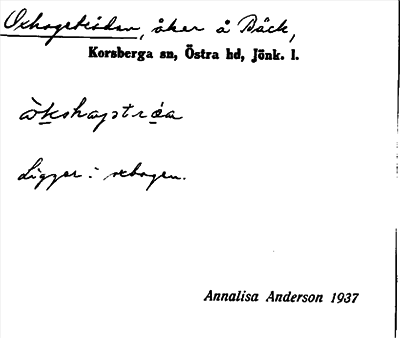 Oxhagsträdan, åker å Bäck,
Korsberga sn, Östra hd, Jönk. l.
Ligger i oxhagen.
Annalisa Anderson 1937